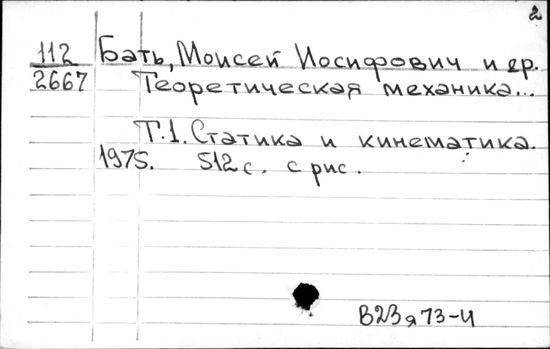 2
112 Бать, Моисей Иосифович и др.
2667 Теоретическая механика...
Т.1. Статика и кинематика.
1975. 512 с. с рис.
В23я73-4